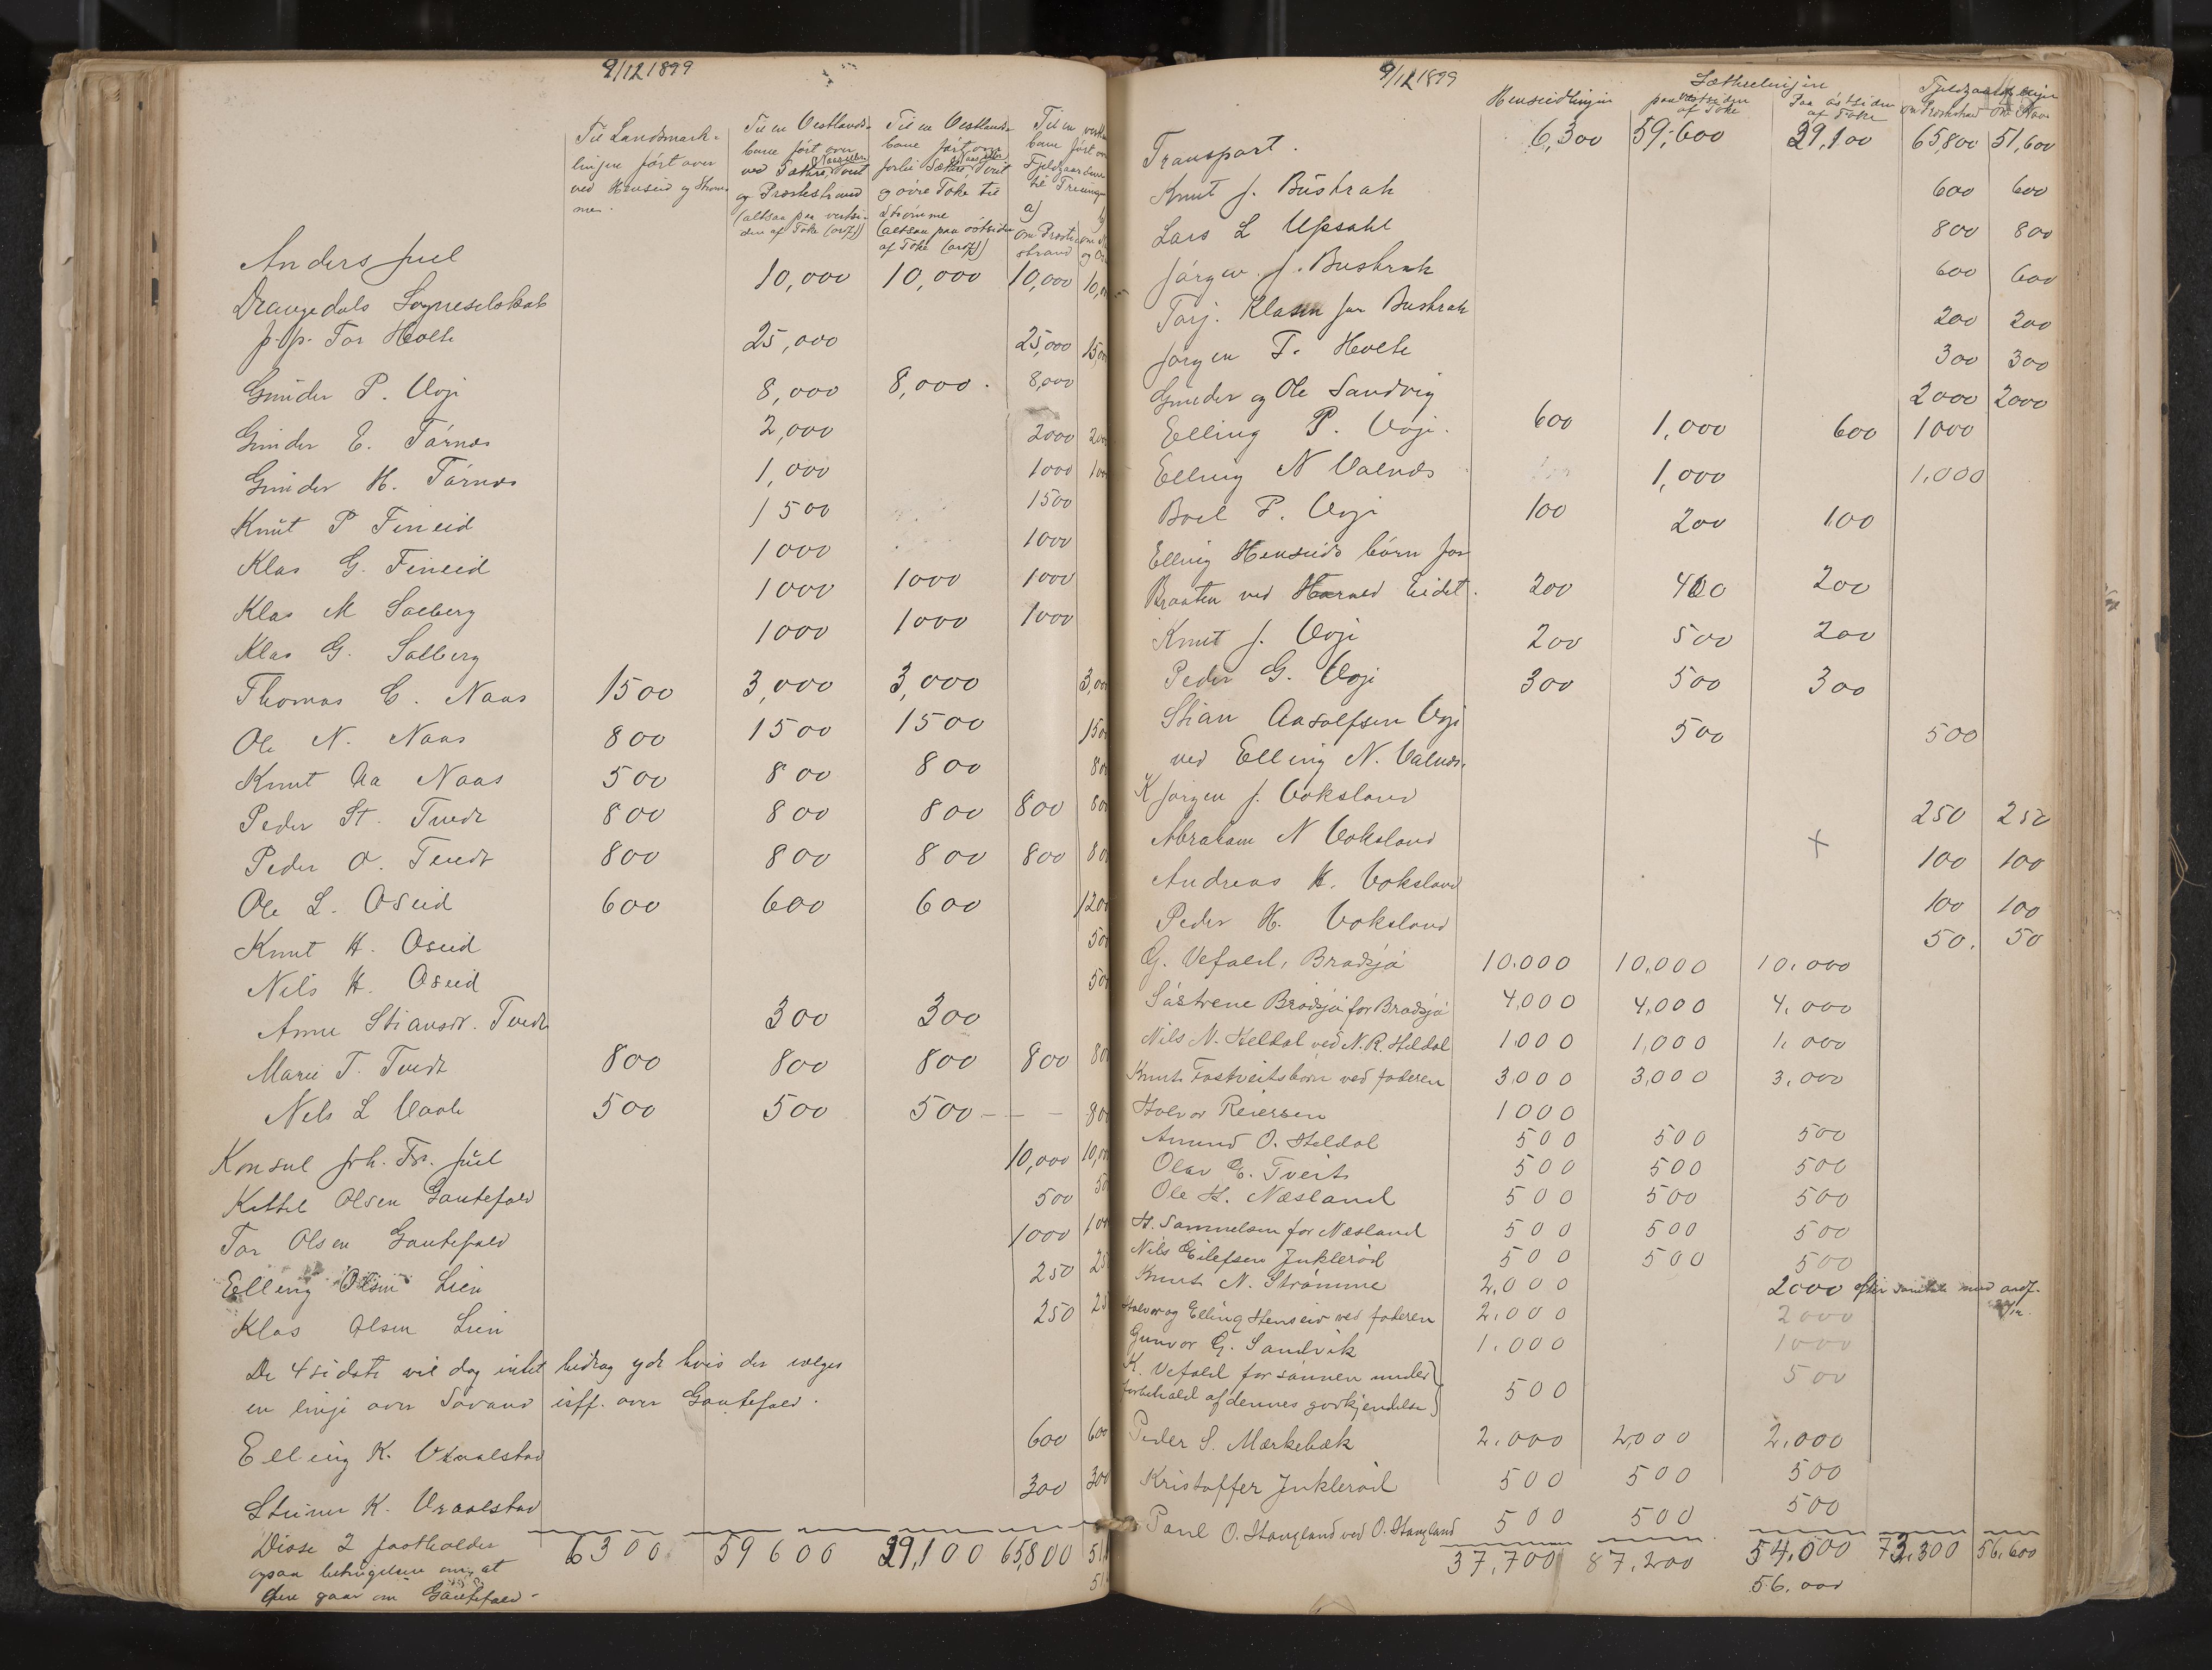 9/12 1899
Til Landsmark-
linjen ført over
ved Henseid og Strøm-
men.
Til en Vestlands-
bane ført over
ved Sæthre, Tveit
og Præstestrand
(altsaa paa vestsi-
den af Toke (ordf))
Til en Vestlands-
bane ført over
forbi Sæthre, Tveit
og øvre Toke til
Strømme
(altsaa paa østsiden
af Toke (ordf))
Til en vestl
bane ført ov
Fjeldgaardene
til Treungen
a)
om Præste
strand
Anders Juel 10,000 10,000 10,000 10,0
Drangedals Sogneselskab
p.p. Tor Holte 25,000 25,000 15,00
Gunder P. Voje 8,000 8,000. 8,000
Gunder E. Tørnes 2,000 2000 200
Gunder H. Tørnes 1,000 1000 100
Knut P Fineid 1500 1500
Klas G. Fineid 1000 1000
Klas M Solberg 1000 1000 1000
Klas G. Solberg 1000 1000 1000
Thomas C. Naas 1500 3,000 3,000 3,00
Ole N. Naas 800 1500 1500 150
Knut Aa Naas 500 800 800 80
Peder St. Tvedt 800 800 800 800 80
Peder O. Tvedt 800 800 800 800 80
Ole L. Oseid 600 600 600 120
Knut H. Oseid 50
Nils H. Oseid 50
Anne Stiansdr. Tvedt 300 300
Marie T. Tvedt 800 800 800 800 80
Nils L Vaale 500 500 500 - - - 80
Konsul Joh. Fr. Juel 10,000 10,0
Kittel Olsen Gautefald 500 50
Tor Olsen Gautefald 1000 100
Elling Olsen Lien 250 25
Klas Olsen Lien 250 25
De 4 sidste vil dog intet bidrag yde hvis der vælges
en linje over Søvand isff. over Gautefald.
Elling K. Vraalstad 600 600
Steiner K. Vraalstad 300 300
Disse 2 fastholder
ogsaa betingelsen om, at
den gaar om Gautefald.
6300 59600 39,100 65,800 51,
9/12 1899
Henseidlinjen
Sæthrelinjen
paa vestsiden
af Toke
Paa østsiden
af Toke
Fjeldgaardslinjen
om Præstestrand
Transport. 6,300 59,600 39,100 65,800 51,600
Knut J. Buskrak 600 600
Lars L Upsahl 800 800
Jørgen J. Buskrak 600 600
Torj. Klasen for Buskrak 200 200
Jørgen T. Holte 300 300
Gunder og Ole Sandvig 2000 2000
Elling P. Voje. 600 1,000 600 1000
Elling N Valnæs 1,000 1,000
Boel P. Voje 100 200 100
Elling Henseids børn for
Braaten ved Eidet. 200 400 200
Knut J. Voje 200 500 200
Peder G. Voje 300 500 300
Stian Aasolfsen Voje
ved Elling N. Valnæs. 500 500
K Jørgen J. Voksland 250 250
Abraham N Voksland × 100 100
Andreas K. Voksland 100 100
Peder H. Voksland 50. 50
G. Vefald, Bradsjø 10.000 10,000 10,000
Søstrene Bradsjø for Bradsjø 4,000 4,000 4,000
Nils N. Heldal ved N. R. Heldal 1000 1,000 1,000
Knut Tostveits børn ved faderen 3,000 3,000 3,000
Halvor Reiersen 1000
Amund O. Heldal 500 500 500
Olav E. Tveit 500 500 500
Ole H. Næsland 500 500 500
H. Samuelsen for Næsland 500 500 500
Nils Eilefsen Inklerød 500 500 500
Knut N. Strømme 2,000 2000 efter samtale med ordf.
Halvor og Elling Henseid ved faderen 2.000 2000
Gunvor G. Sandvik 1.000 1000
K. Vefald for sønnen under
forbehold af dennes godkjendelse 500 500
Peder S. Mærkebæk 2.000 2,000 2,000
Kristoffer Inklerød 500 500 500
Paul O. Stangland ved O. Stangland 500 500 500
37,700 87,200 54,000 73,300 56,600
56,000